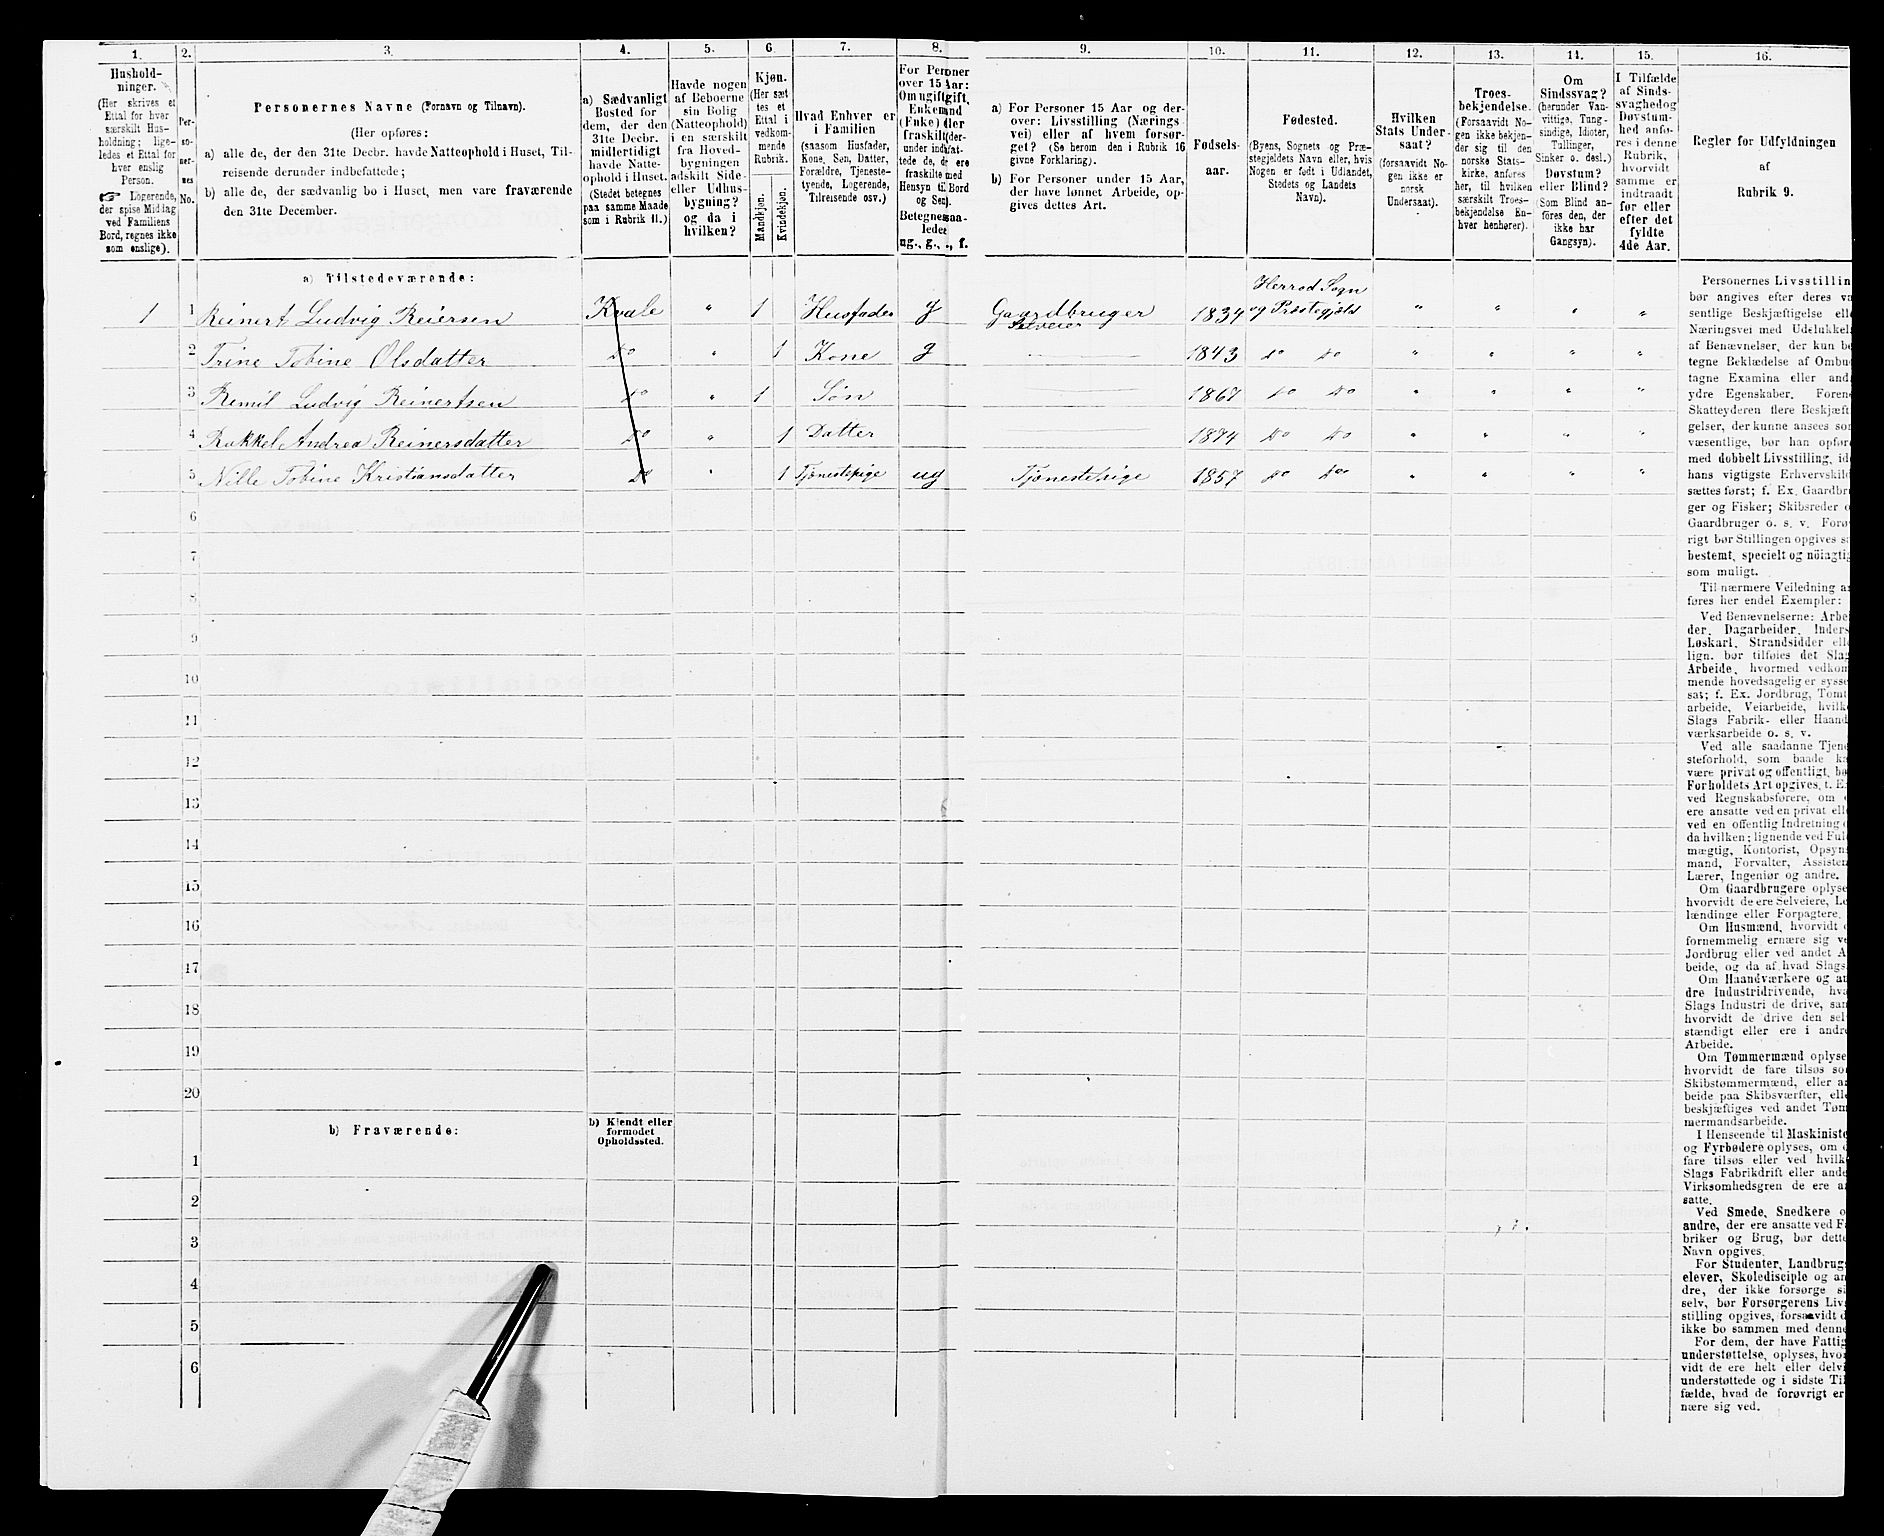 1.
Hushold-
ninger.
(Her skrives et
Ettal for hver
særskilt Hus-
holdning; lige-
ledes et Ettal for
hver enslig
Person.
☞ Logerende,
der spise Middag
ved Familiens
Bord, regnes ikke
som enslige).
2.
Per-
so-
ner-
nes
No.
3.
Personernes Navne (Fornavn og Tilnavn).
(Her opføres:
a) alle de, der den 31te Decbr. havde Natteophold i Huset, Til-
reisende derunder indbefattede;
b) alle de, der sædvanlig bo i Huset, men vare fraværende
den 31te December.
4.
a) Sædvanligt
Bosted for
dem, der den
31te Decbr.
midlertidigt
havde Natte-
ophold i Huset.
(Stedet betegnes
paa samme Maade
som i Rubrik 11.)
5.
Havde nogen
af Beboerne
sin Bolig
(Natteophold)
i en særskilt
fra Hoved-
bygningen
adskilt Side-
eller Udhus-
bygning?
og da i
hvilken?
6.
Kjøn.
(Her sæt
tes et
Ettal i
vedkom-
mende
Rubrik.
Mandkjøn.
Kvindekjøn.
7.
Hvad Enhver er
i Familien
(saasom Husfader,
Kone, Søn, Datter,
Forældre, Tjeneste-
tyende, Logerende,
Tilreisende osv.)
8.
For Peroner
over 15 Aar:
Om ugift gift,
Enkemand
(Enke) eller
fraskilt (der-
under indbefat-
tede de, der ere
fraskilte med
Hensyn til Bord
og Seng).
Betegnes saa-
ledes
ug., g., ., f.
9.
a) For Personer 15 Aar og der-
over: Livsstilling (Nærings-
vei) eller af hvem forsør-
get? (Se herom den i Rubrik 16
givne Forklaring).
b) For Personer under 15 Aar,
der have lønnet Arbeide, op-
gives dettes Art.
10.
Fødsels-
aar.
11.
Fødested.
(Byens, Sognets og Præ-
stegjeldets Navn eller, hvis
Nogen er født i Udlandet,
Stedets og Landets
Navn).
12.
Hvilken
Stats Under-
saat?
(forsaavidt No-
gen ikke er
norsk
Undersaat).
13.
Troes-
bekjendelse.
(Forsaavidt No-
gen ikke bekjen-
der sig til den
norske Stats-
kirke, anføres
her, til hvilken
særskilt Troes-
bekjendelse En-
hver henhører).
14.
Om
Sindssvag?
(herunder Van-
vittige, Tung-
sindige, Idioter,
Tullinger,
Sinker o. desl.)
Døvstum?
eller Blind?
(Som Blind an-
føres den, der
ikke har
Gangsyn).
15.
I Tilfælde
af Sinds-
svaghed og
Døvstum-
hed anfø-
res i denne
Rubrik,
hvorvidt
samme er
indtraadt
før eller
efter det
fyldte
4de Aar.
16.
Regler for Udfyldningen
af
Rubrik 9.
a) Tilstedeværende:
1 1 Reinert Ludvig Reiersen Kvale " 1 Husfader g Gaardbruger Selveier 1834 Herred Sogn og Præstegjeld " " " "
2 Trine Tobine Olsdatter do " 1 Kone g 1843 do do " " " "
3 Remil Ludvig Reinertsen do " 1 Søn 1867 do do " " " "
4 Rakkel Andrea Reinersdatter do " 1 Datter 1874 do do " " " "
5 Nille Tobine Kristiansdatter do " 1 Tjenestepige ug Tjenestepige 1857 do do " " " "
6
7
8
9
10
11
12
13
14
15
16
17
18
19
20
b) Fraværende:
b) Kjendt eller
formodet
Opholdssted.
1
2
3
4
5
6
Personernes Livsstillin
bør angives efter deres væ
sentlige Beskjæftigelse elle
Næringsvei med Udelukkel
af Benævnelser, der kun be
tegne Beklædelse af Ombu
tagne Examina eller and
ydre Egenskaber. Foren
Skatteyderen flere Beskjæft
gelser, der kunne ansees som
væsentlige, bør han opføre
med dobbelt Livsstilling, id
hans vigtigste Erhvervskild
sættes først; f. Ex. Gaardbru
ger og Fisker; Skibsreder o
Gaardbruger o. s. v. Forø
rigt bør Stillingen opgives sa
bestemt, specielt og nöiagtig
som muligt.
Til nærmere Veiledning an
føres her endel Exempler:
Ved Benævnelserne: Arbei
der, Dagarbeider, Inders
Løskarl, Strandsidder elle
lign. bør tilføies det Slag
Arbeide, hvormed vedkom
mende hovedsagelig er sysse
sat; f. Ex. Jordbrug, Tomt
arbeide, Veiarbeide, hvilk
Slags Fabrik- eller Haand
værksarbeide o. s. v.
Ved alle saadanne Tjene
steforhold, som baade ka
være privat og offentligt, bø
Forholdets Art opgives, t. Ex
ved Regnskabsførere, om d
ere ansatte ved en privat elle
ved en offentlig Indretning o
da hvilken; lignende ved Ful
mægtig, Kontorist, Opsyns
mand, Forvalter, Assisten
Lærer, Ingeniør og andre.
Om Gaardbrugere oplyse
hvorvidt de ere Selveiere, Le
lændinge eller Forpagtere.
Om Husmænd, hvorvidt d
fornemmelig ernære sig ve
Jordbrug eller ved andet A
beide, og da af hvad Slags.
Om Haandværkere og an
dre Industridrivende, hva
Slags Industri de drive, sam
hvorvidt de drive den sel
stændigt eller ere i andre
Arbeide.
Om Tømmermænd oplyse
hvorvidt de fare tilsøs som
Skibstømmermænd, eller ar
beide paa Skibsværfter, elle
beskjæftiges ved andet Tøm
mermandsarbeide.
I Henseende til Maskiniste
og Fyrbødere oplyses, om d
fare tilsøs eller ved hvilke
Slags Fabrikdrift eller ande
Virksomhedsgren de ere an
satte.
Ved Smede, Snedkere o
andre, der ere ansatte ved Fa
briker og Brug, bør dette
Navn opgives.
For Studenter, Landbrugs
elever, Skoledisciple og an
dre, der ikke forsørge si
selv, bør Forsørgerens Livs
stilling opgives, forsaavidt d
ikke bo sammen med denne
For dem, der have Fattig
understøttelse, oplyses, hvor
vidt de ere helt eller delvi
understøttede og i sidste Til
fælde, hvad de forøvrigt er
nære sig ved.